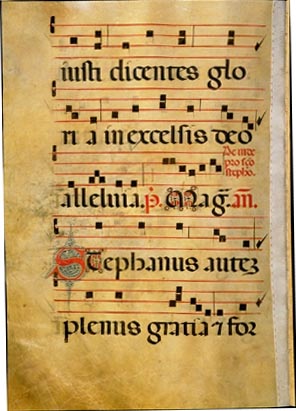 iusti dicentes glo
ri a in excelsis deo
pro sc̄o
stepho.
alleluia. p̄. Maḡ. an̄.
Stephanus autez
plenus gratia ⁊ for